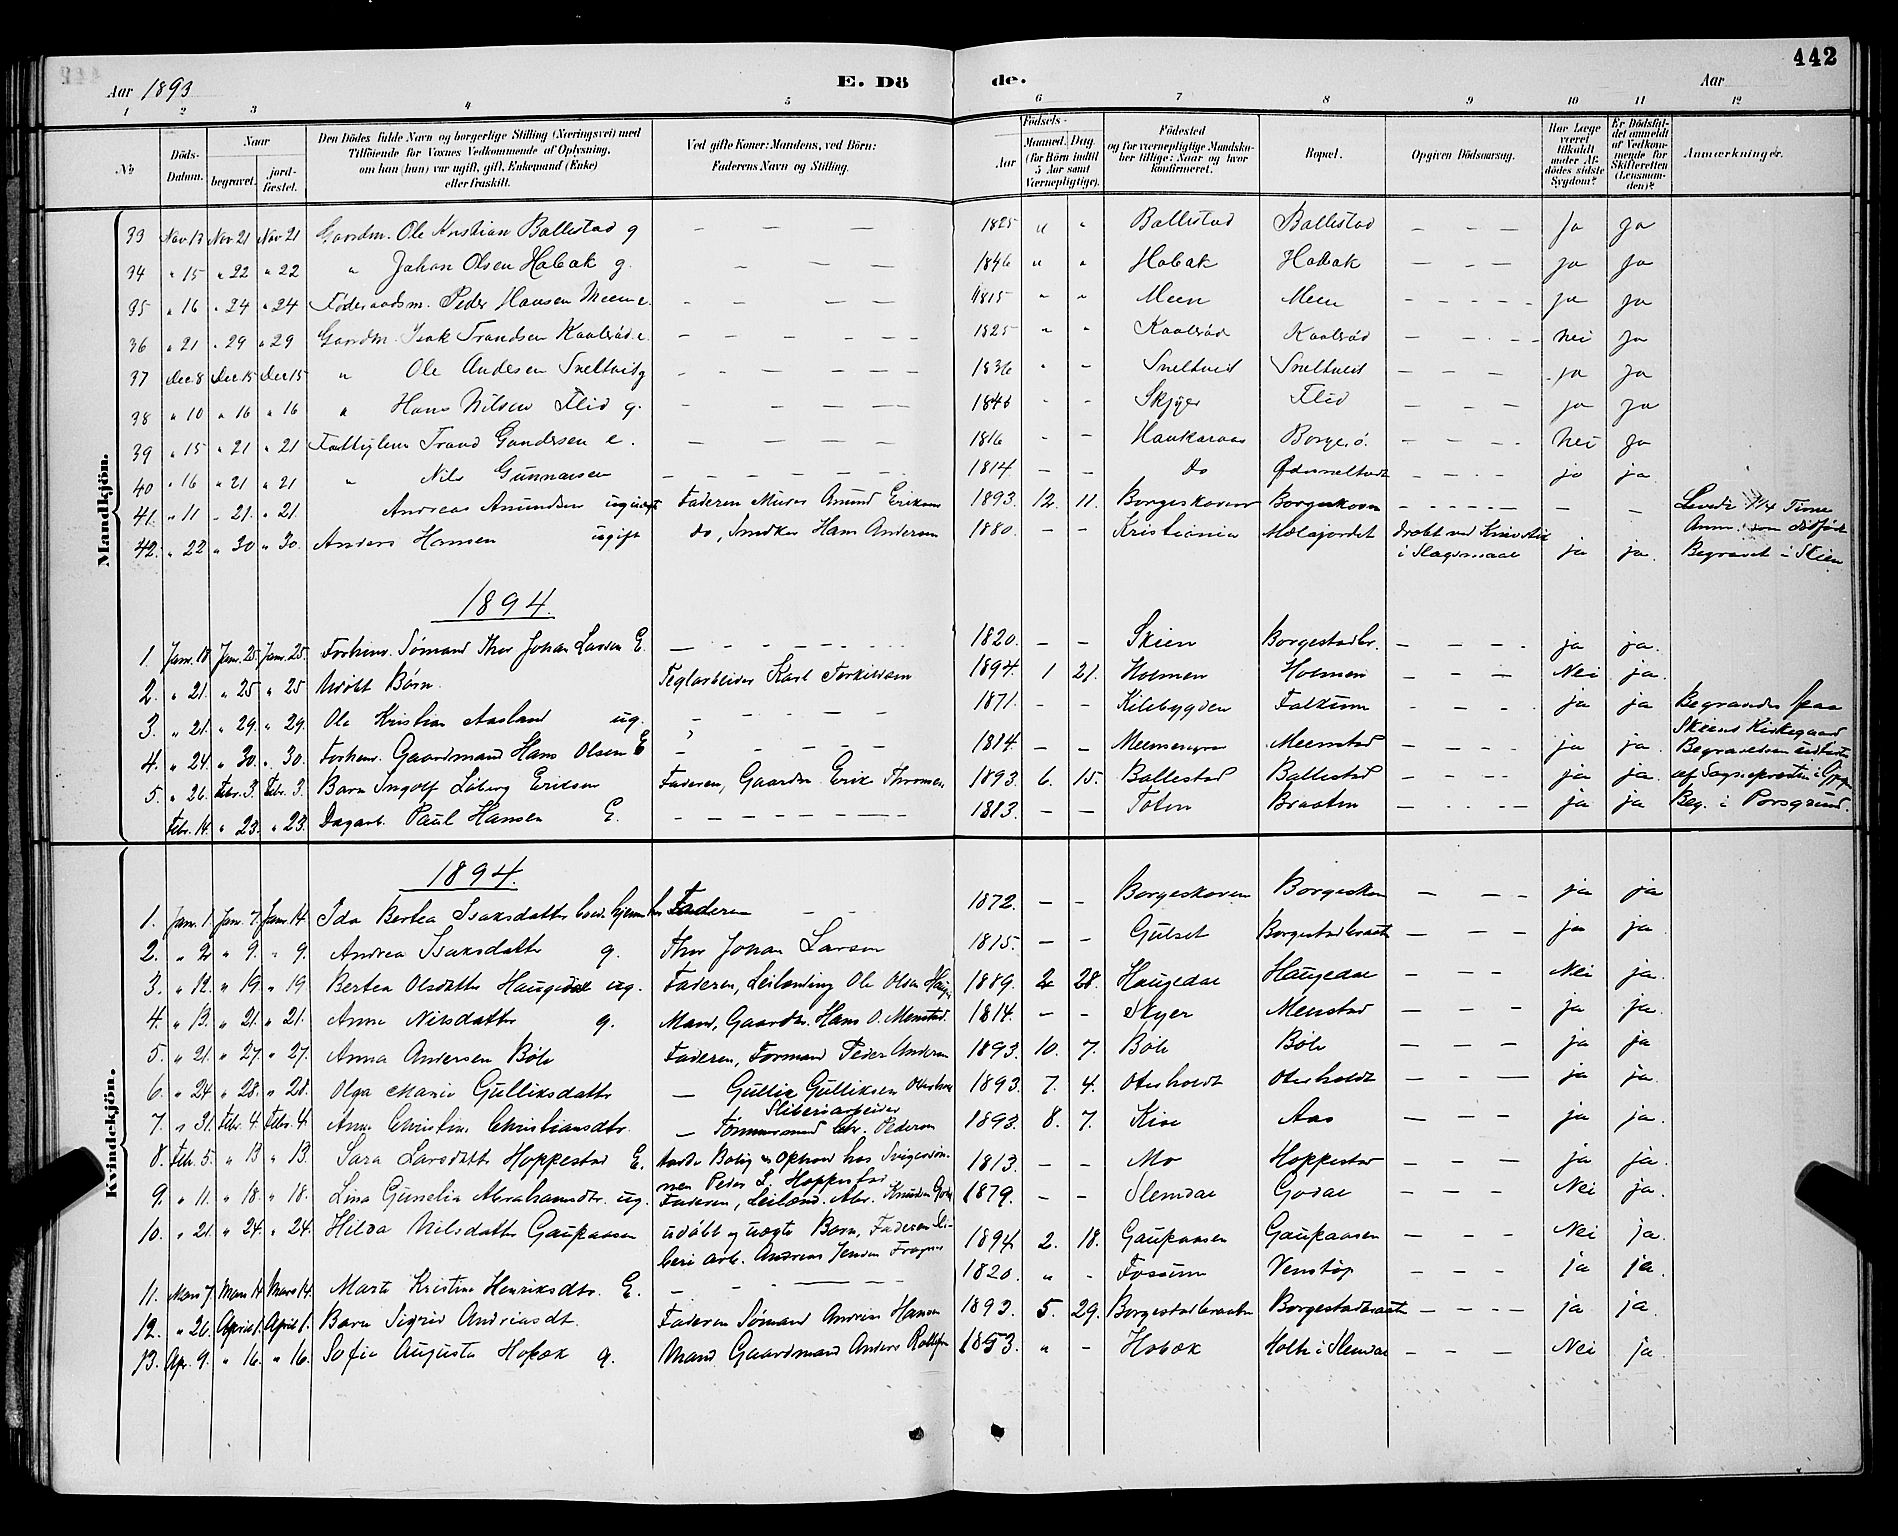 442
Aar 1893
E. Dö
de.
Aar
1 2 3 4 5 6 7 8 9 10 11 12
No
Döds-Datum.
Naar
begravet.
jord-fæstet.
Den Dödes fulde Navn og borgerlige Stilling (Næringsvei) med
Tilföiende for Voxnes Vedkommende af Oplysning,
om han (hun) var ugift, gift, Enkemand (Enke)
eller fraskilt.
Ved gifte Koner: Mandens, ved Börn:
Faderens Navn og Stilling.
Födsels-
Aar
Maaned. Dag
(for Börn indtil
5 Aar samt
Værnepligtige).
Födested
og for værnepligtige Mandska-
ber tillige: Naar og hvor
konfirmeret.
Bopæl.
Opgiven Dödsaarsag.
Har Læge
været
tilkaldt
under Af-
dödes sidste
Sygdom?
Er Dödsfal-
det anmeldt
af Vedkom-
mende for
Skifteretten
(Lensman-
den)?
Anmærkninger.
Mandkjön.
33 Nov 13 Nov 21 Nov 21 Gaardm. Ole Kristian Ballestad g — — — 1825 " " Ballestad Ballestad — — — ja ja
34 " 15 " 22 " 22 " Johan Olsen Hobæk g. — — — 1846 " " Hobæk Hobæk — — — ja ja
35 " 16 " 24 " 24 Föderaadsm. Peder Hansen Meen e. — — — 1815 " " Meen Meen — — — ja ja
36 " 21 " 29 " 29 Gaardm. Isak Trondsen e. — — — 1825 " " — — — nei ja
37 Dec 8 Dec 15 Dec 15 " Ole Andersen Sneltvit g — — — 1836 " — Sneltveid Sneltveid — — — ja ja
38 " 10 " 16 " 16 " Hans Nilsen Flid g. — — — — Flid — — — ja ja
39 " 15 " 21 " 21 Trond Gundersen e. — — — 1816 — — Haukaraas Borge ö. — — — nei ja
40 " 16 " 21 " 21 " Nils Gunnarsen — — — 1814 — — Do — — — ja ja
41. " 11 " 21 " 21. Andreas Amundsen Faderen Murer Amund Eriksen 1893. 12. 11. Borgeskoven Borgeskoven — — — — — Levede 1/4 Time
42. " 22 " 30 " 30. Anders Hansen ugift do, Smed Hans Andersen 1880. — — Kristiania Mælagjordet Dræbt ved Knivstik
i Slagsmaal ja ja. Begravet i Skien
1894.
1. Jan. 18 Jan. 25 Jan. 25. Forhenv. Sömand Thor Johan Larsen E. — — — 1820. — — Skien Borgestadbr. — — — ja ja.
2. " 21. " 25 " 25 Udöbt Barn. Teglarbeider Karl Torkildsen 1894. 1 21. Holmen Holmen — — — Nei ja.
3. " 21. " 29. " 29. Ole Kristian Aasland ug. — — — 1871. — — Kilebygden Falkum — — — ja ja Begravedes paa
Skiens Kirkegaard
4. " 24. " 30. " 30. Forhenv. Gaardmand Hans Olsen E — — — 1814. — — Meenstad — — — ja ja.
5. " 26. Febr. 3. Febr. 3. Barn Ingolf Löberg Eriksen Faderen, Gaardbr. Erik Thomsen 1893. 6. 15. Ballestad Ballestad — — — ja ja.
Febr. 14. " 23. " 23. Dagarb. Paul Hansen E. — — — 1813. — — Toten Braaten — — — ja ja Beg. i Porsgrund.
Kvindekjön.
1894.
1. Jan. 1. Jan. 7. Jan. 14. Ida Bertea Isaksdatter Faderen — — 1872. — — Borgeskoven Borgeskoven — — — ja ja
2. " 2 " 9. " 9. Andrea Isaksdatter g. Thor Johan Larsen 1815. — — Gulset Borgestadbraaten — — — ja ja.
3. " 12. " 19 " 19 Bertea Olsdatter Haugedal ug. Faderen, Leilending Ole Olsen 1889. 2 28. Haugedal Haugedal — — — Nei ja.
4. " 13. " 21. " 21. Anne Nilsdatter g. Mand, Gaardbr. Hans O. Menstad. 1814. — — Skyer Menstad — — — ja ja.
5. " 21. " 27. " 27. Anna Andersen Böle Faderen, Formand Peder Andersen 1893. 10. 7. Böle Böle — — — ja ja
6. " 24 " 28. " 28. Olga Marie Gulliksdatter — Gullik Gulliksen Oterholt 1893. 7. 4. Oterholdt Oterholdt — — — ja ja.
Sliberiarbeider
7. " 31. Febr. 4 Febr. 4. Anne Christine Christiansdtr. — Tömmermand Chr. Pedersen 1893. 8. 7. Kise Aas — — — ja ja.
8. Febr. 5. " 13 " 13. Sara Larsdatter Hoppestad E. havde Bolig og Ophold hos Svigersön-
nen Peder L. Hoppestad 1813. — — Mo Hoppestad — — — ja ja.
9. " 11. " 18. " 18. Lina Gunelia Abrahamsdtr. ug. Faderen, Leilend. Abr. Knudsen 1879. — — Slemdal Godal — — — Nei ja.
10. " 21. " 24. " 24. Hilda Nilsdatter Gaupaasen udöbt og uægte Barn, Faderen Sli-
beri arb. Andreas Jensen 1894 2. 18. Gaupaasen Gaupaasen — — — Nei ja.
11. Mars 7. Mars 14. Mars 14. Marte Kristine Henriksdtr. E. — — — 1820. " — Fossum Venstöp — — — ja ja.
12. " 26. April 1. April 1. Barn Sigrid Andreasdt. Faderen Sömand Andreas Hansen 1892. 5. 29. Borgestadbraaten Borgestadbraaten — — — ja ja.
13. Apr. 9. " 16. " 16. Sofie Augusta Hobæk g. Mand Gaardmand Anders 1853. " — Hobæk Holte i Slemdal — — — Nei ja.